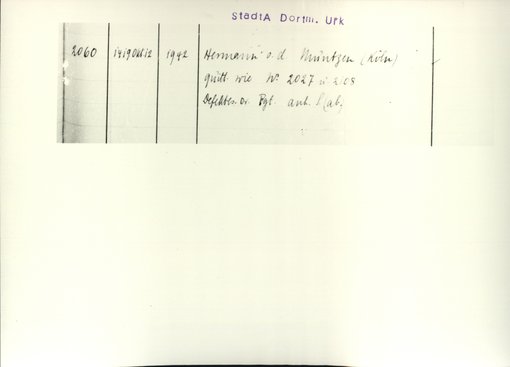 StadtA Dortm. Urk
2060 1419 Okt 12 1942 Hermann v. d. Müntzen (Köln)
quitt. wie No 2027 u. 2108
or. Pgt. anh. S. ab,